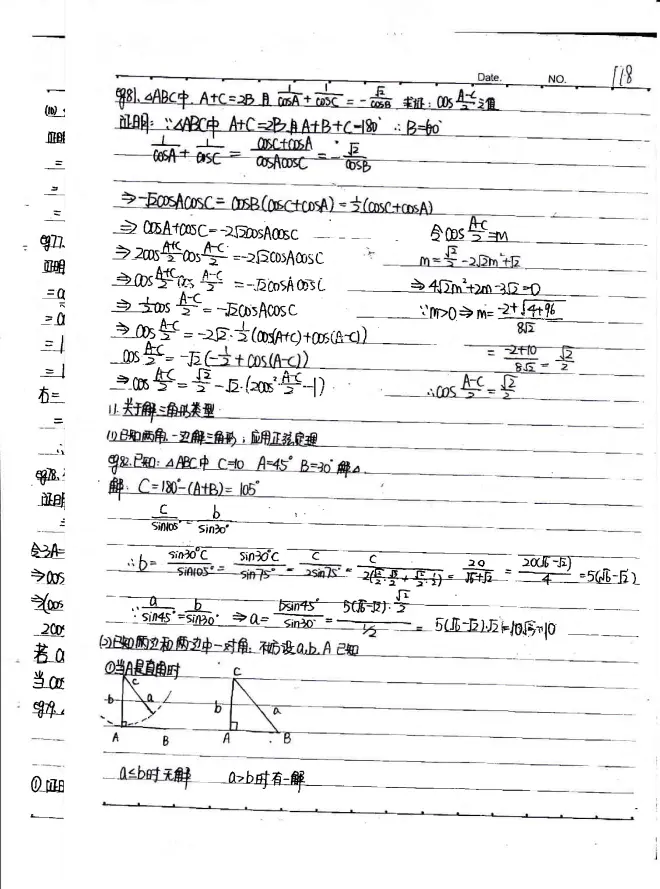 Date. NO. 118
eg81. △ABC中, A+C=2B 且 1/cosA + 1/cosC = -√2/cosB 求证: cos (A-C)/2 之值
证明: ∵△ABC中 A+C=2B且A+B+C=180° ∴B=60°
1/cosA + 1/cosC = (cosC+cosA)/(cosAcosC) = -√2/cosB
⇒-√2cosAcosC = cosB(cosC+cosA) = 1/2(cosC+cosA)
⇒ cosA+cosC = -2√2cosAcosC
⇒ 2cos (A+C)/2 cos (A-C)/2 = -2√2cosAcosC
⇒cos (A+C)/2 cos (A-C)/2 = -√2cosAcosC
⇒ 1/2cos (A-C)/2 = -√2cosAcosC
⇒ cos (A-C)/2 = -2√2·1/2(cos(A+C)+cos(A-C))
cos (A-C)/2 = -√2(-1/2+cos(A-C))
⇒ cos (A-C)/2 = √2/2 - √2·(2cos² (A-C)/2 -1)
令cos (A-C)/2 = m
m = √2/2 - 2√2m²+√2
⇒ 4√2m²+2m-3√2=0
∵m>0 ⇒ m = (-2+√(4+96))/(8√2)
= (-2+10)/(8√2) = √2/2
∴cos (A-C)/2 = √2/2
11. 关于解三角形类型
(1)已知两角、一边解三角形; 应用正弦定理
eg82. 已知: △ABC中 C=10 A=45° B=30° 解△.
解: C=180°-(A+B)=105°
C/sin105° = b/sin30°
∴b = sin30°C/sin105° = sin30°C/sin75° = C/2sin75° = C/2(√2/2·√3/2+√2/2·1/2) = 20/(√6+√2) = 20(√6-√2)/4 = 5(√6-√2)
∵ a/sin45° = b/sin30° ⇒ a = bsin45°/sin30° = 5(√6-√2)·√2/2 / 1/2 = 5(√6-√2)·√2 = 10√3-10
(2)已知两边和两边中一对角, 不妨设a,b,A已知
①当A是直角时
C b a A B
C b a A B
a≤b时无解 a>b时有一解
(10)
证明
=
=
=
eg77.
证明
=
=
=1
=1
右=
=
∴
eg78.
证明
=
令3A=
⇒cos
⇒(cos
2cos
若
当cos
eg79.
①证